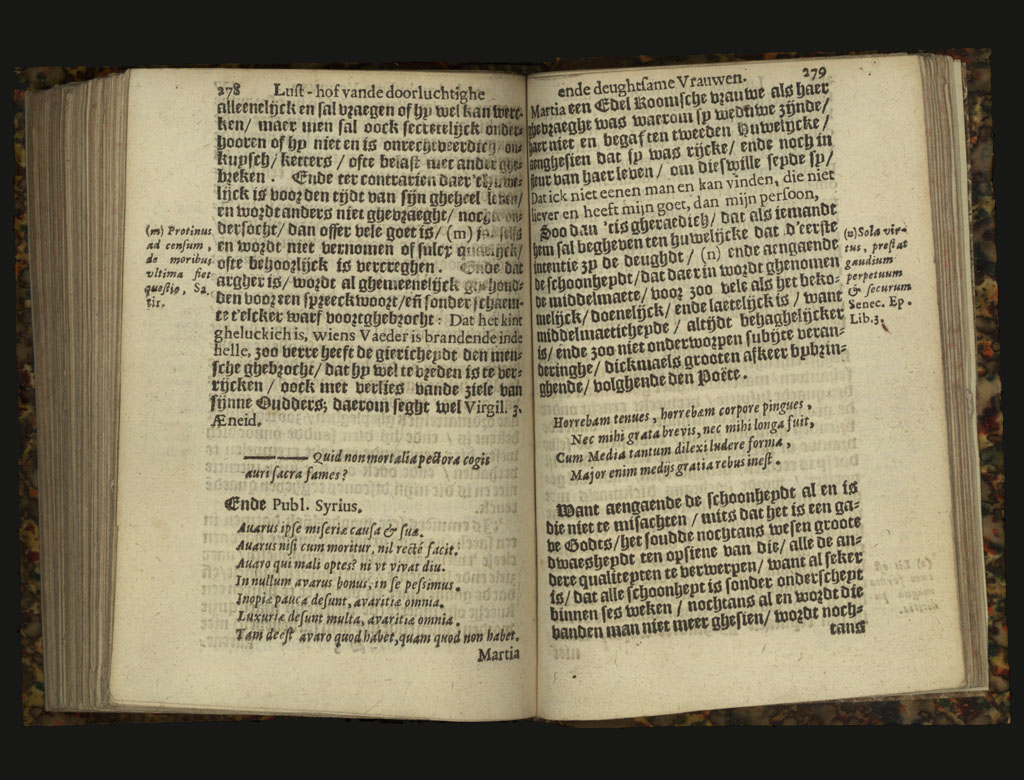 278 Lust-hof vande doorluchtighe
alleenelijck en sal vraegen of hy wel kan werc-
ken/ maer men sal oock secretelijck onder-
hooren of hy niet en is onrechtveerdich/ on-
kuysch/ ketters/ ofte belast met ander ghe-
breken. Ende ter contrarien daer
lijck is voor den tijdt van sijn gheheel leven/
en wordt anders niet ghevraeght/ noch on-
dersocht/ dan offer vele goet is/ (m) ja selfs
en wordt niet vernomen of sulcx
ofte behoorlijck is vercreghen. Ende dat
argher is/ wordt al ghemeenelijck ghehond-
den voor een spreeckwoort/ eñ sonder schaem-
te t'elcker warf voortghebrocht: Dat het kint
gheluckich is, wiens Vaeder is brandende inde
helle, zoo verre heeft de giericheydt den men-
sche ghebrocht/ dat hy wel te vreden is te ver-
rijcken/ oock met verlies vande ziele van
sijnne Oudders; daerom seght wel Virgil. 3.
Æneid.
(m) Protinus
ad censum,
de moribus
vltima fiet
questio, Sa.
tir.
Quid non mortalia pectora cogis
auri sacra fames?
Ende Publ. Syrius.
Avarus ipse miseriæ causa & suæ.
Avarus nisi cum moritur, nil recté facit.
Avaro qui mali optes? ni vt vivat diu.
In nullum avarus bonus, in se pessimus.
Inopiæ pauca desunt, avaritiæ omnia.
Luxuriæ desunt multa, avaritiæ omnia.
Tam deest avaro quod habet, quam quod non habet.
Martia
ende deughtsame Vrauwen. 279
Martia een Edel Roomsche vrauwe als haer
ghevraeght was waerom sy weduwe zijnde/
haer niet en begaf ten tweeden Huwelijcke/
aenghesien dat sy was rijcke/ ende noch in
fleur van haer leven/ om dieswille seyde sy/
Dat ick niet eenen man en kan vinden, die niet
liever en heeft mijn goet, dan mijn persoon,
Soo dan 'tis gheraedich/ dat als iemandt
hem sal begheven ten huwelijcke dat d'eerste
intentie zy de deughdt/ (n) ende aengaende
de schoonheydt/ dat daer in wordt ghenomen
de middelmaete/ voor zoo vele als het beko-
melijck/ doenelijck/ ende laetelijck is/ want
middelmaeticheyde/ altijdt behaghelijcker
is/ ende zoo niet onderworpen subijte veran-
deringhe/ dickmaels grooten afkeer bybrin-
ghende/ volghende den Poëte.
(n) Sola vir-
tus, prestat
gaudium
perpetuum
& securum
Senec. Ep.
Lib. 3.
Horrebam tenues, horrebam corpore pingues,
Nec mihi grata brevis, nec mihi longa fuit,
Cum Media tantum dilexi ludere forma,
Major enim medijs gratia rebus inest.
Want aengaende de schoonheydt al en is
die niet te misachten/ mits dat het is een ga-
ve Godts/ het soudde nochtans wesen groote
dwaesheydt ten opsiene van die/ alle de an-
dere qualiteyten te verwerpen/ want al seker
is/ dat alle schoonheyt is sonder onderscheyt
binnen ses weken/ nochtans al en wordt die
vanden man niet meer ghesien/ wordt noch-
tans